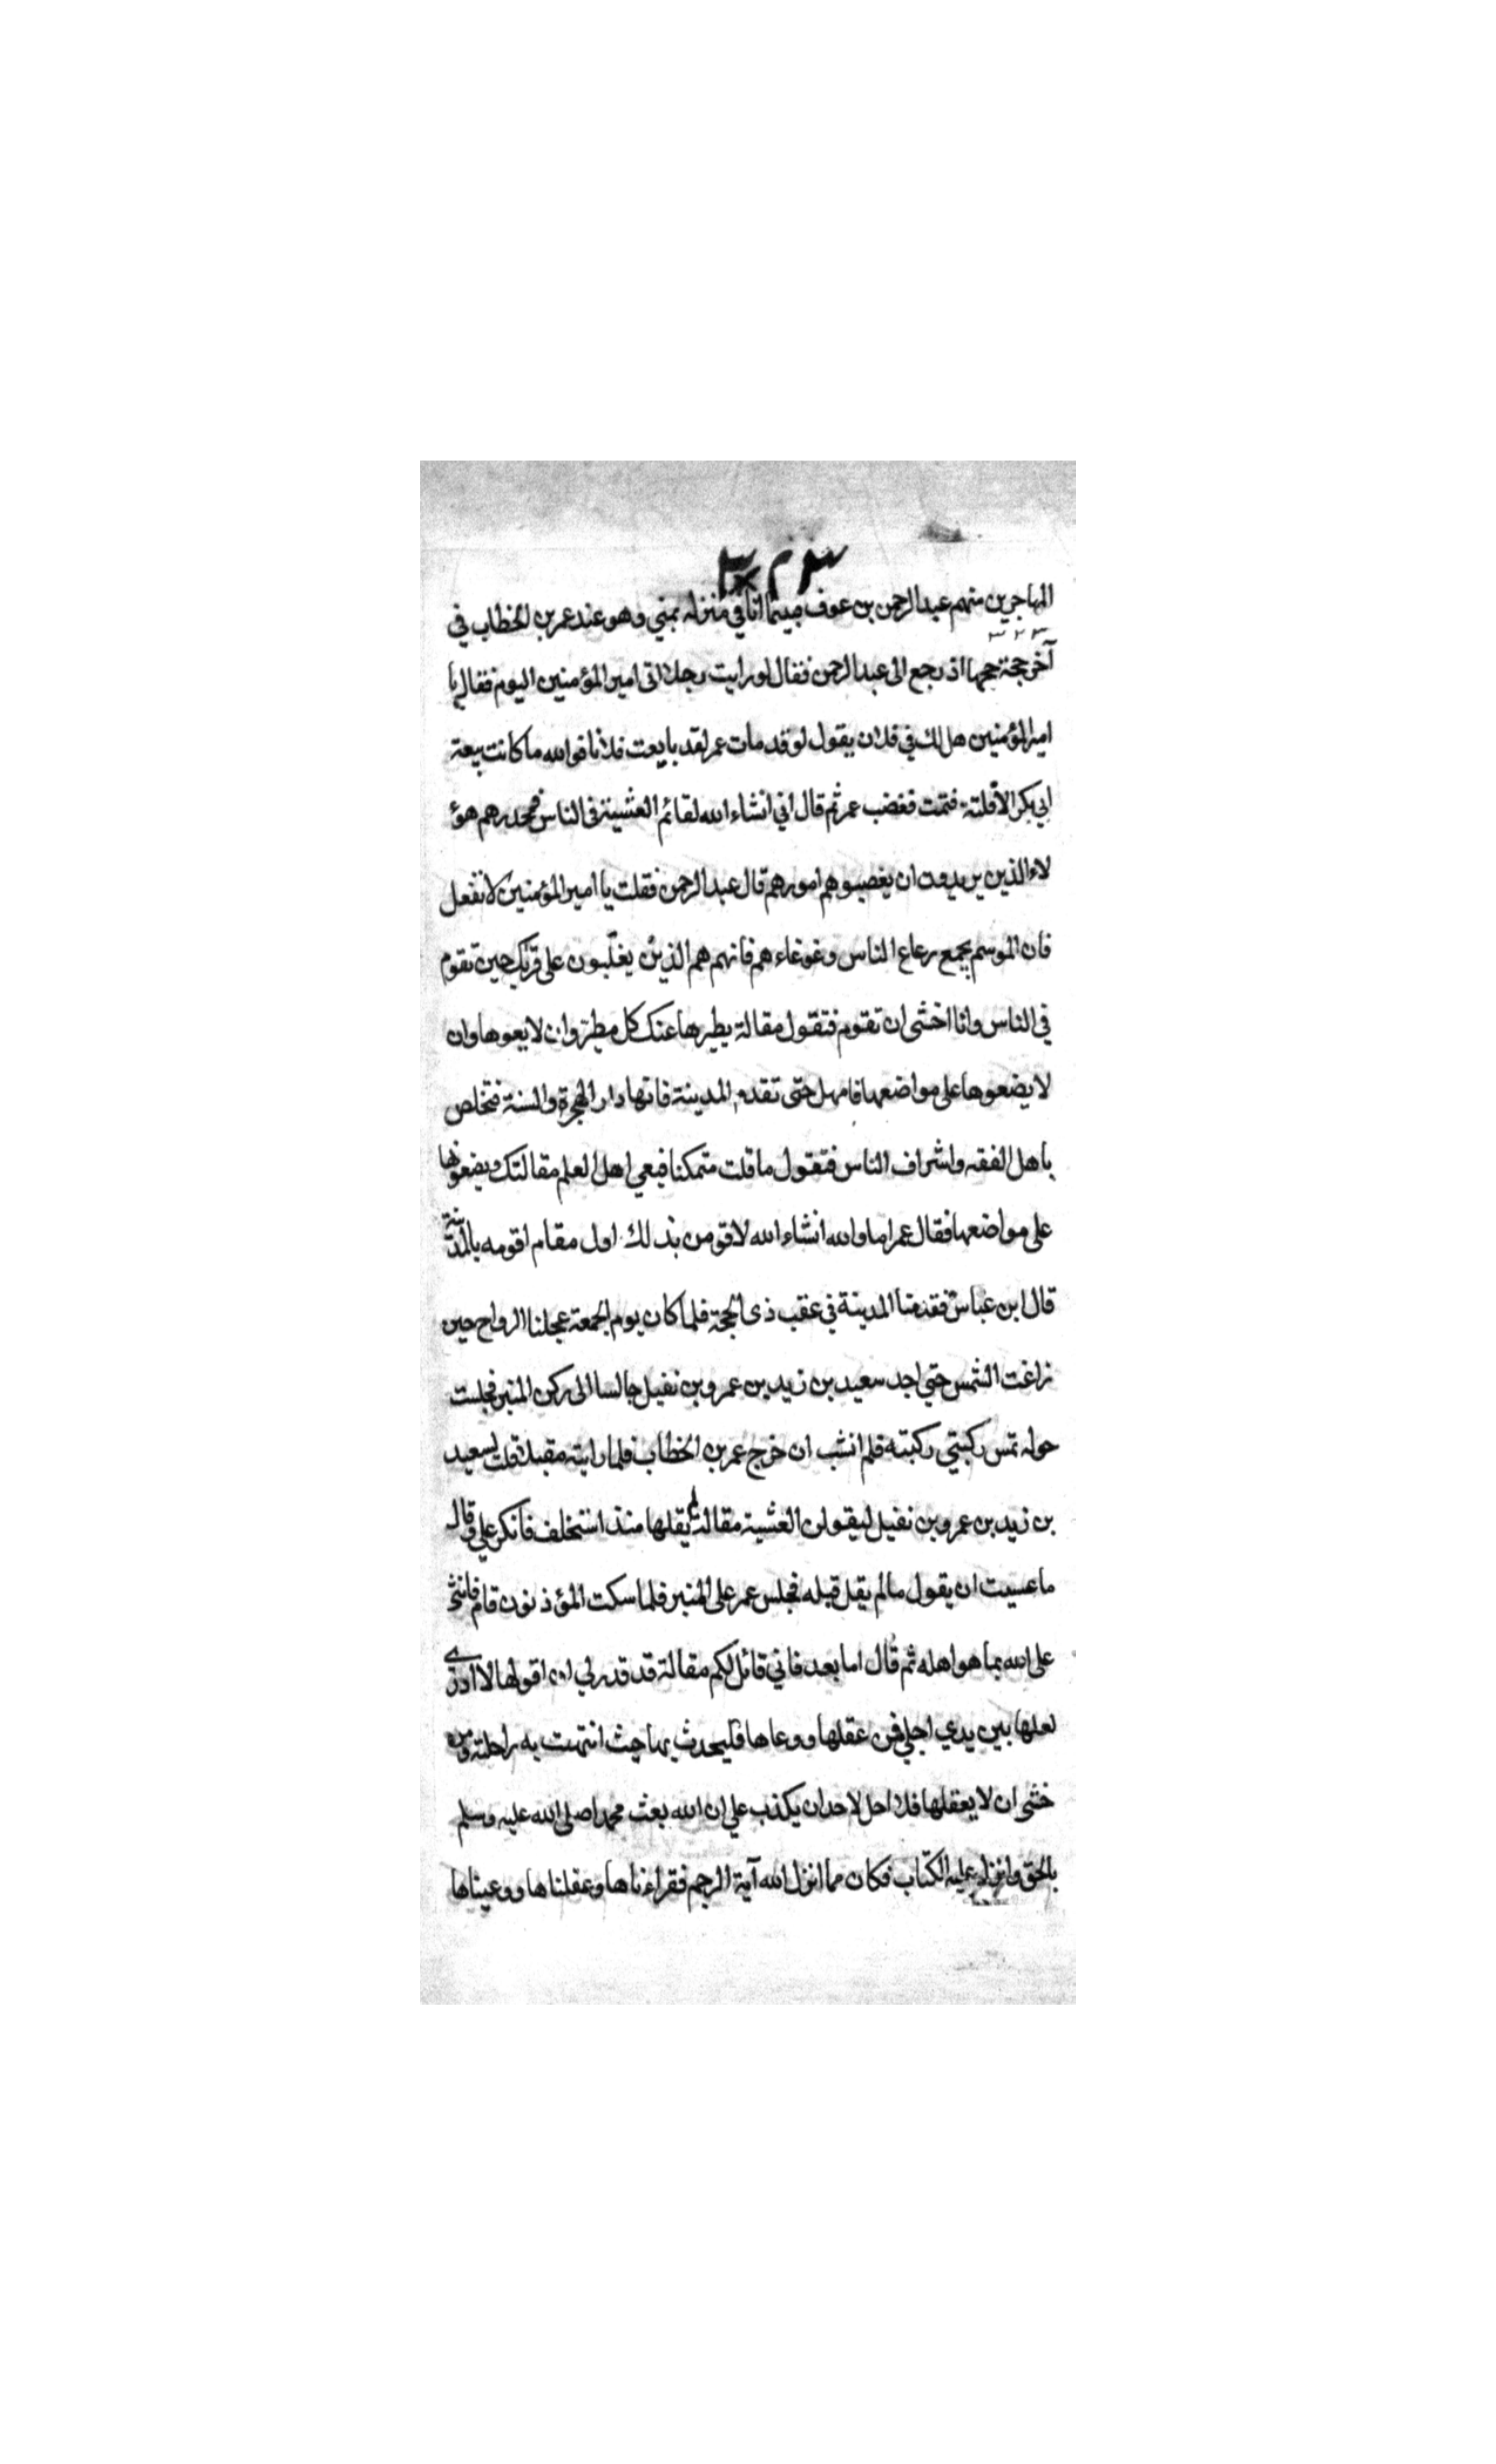 المهاجرين منهم عبد الرحمن بن عوف فبينما انا في منزله بمنى وهو عند عمر بن الخطاب في
آخر حجة حجها اذ رجع الى عبد الرحمن فقال لو رايت رجلا اتى امير المؤمنين اليوم فقال يا
امير المؤمنين هل لك في فلان يقول لو قد مات عمر لقد بايعت فلانا فوالله ما كانت بيعة
ابي بكر الا فلتة فتمت فغضب عمر ثم قال اني انشاء الله لقائم العشية في الناس فمحذرهم هؤ
لاء الذين يريدون ان يغصبوهم امورهم قال عبد الرحمن فقلت يا امير المؤمنين لا تفعل
فان الموسم يجمع رعاع الناس وغوغاءهم فانهم هم الذين يغلبون على قربك حين تقوم
في الناس وانا اخشى ان تقوم فتقول مقالة يطيرها عنك كل مطير وان لا يعوها وان
لا يضعوها على مواضعها فامهل حتى تقدم المدينة فانها دار الهجرة والسنة فتخلص
باهل الفقه واشراف الناس فتقول ما قلت متمكنا فيعي اهل العلم مقالتك ويضعونها
على مواضعها فقال عمر اما والله انشاء الله لاقومن بذلك اول مقام اقومه بالمدينة
قال ابن عباس فقدمنا المدينة في عقب ذي الحجة فلما كان يوم الجمعة عجلنا الرواح حين
زاغت الشمس حتي اجد سعيد بن زيد بن عمرو بن نفيل جالسا الى ركن المنبر فجلست
حوله تمس ركبتي ركبته فلم انشب ان خرج عمر بن الخطاب فلما رايته مقبلا قلت لسعيد
بن زيد بن عمرو بن نفيل ليقولن العشية مقالة لم يقلها منذ استخلف فانكر علي وقال
ما عسيت ان يقول ما لم يقل قبله فجلس عمر على المنبر فلما سكت المؤذنون قام فاثنى
على الله بما هو اهله ثم قال اما بعد فاني قائل لكم مقالة قد قدر لي ان اقولها لا ادري
لعلها بين يدي اجلي فمن عقلها ووعاها فليحدث بها حيث انتهت به راحلته ومن
خشى ان لا يعقلها فلا احل لاحد ان يكذب علي ان الله بعث محمدا صلى الله عليه وسلم
بالحق وانزل عليه الكتاب فكان مما انزل الله آية الرجم فقراءناها وعقلناها ووعيناها